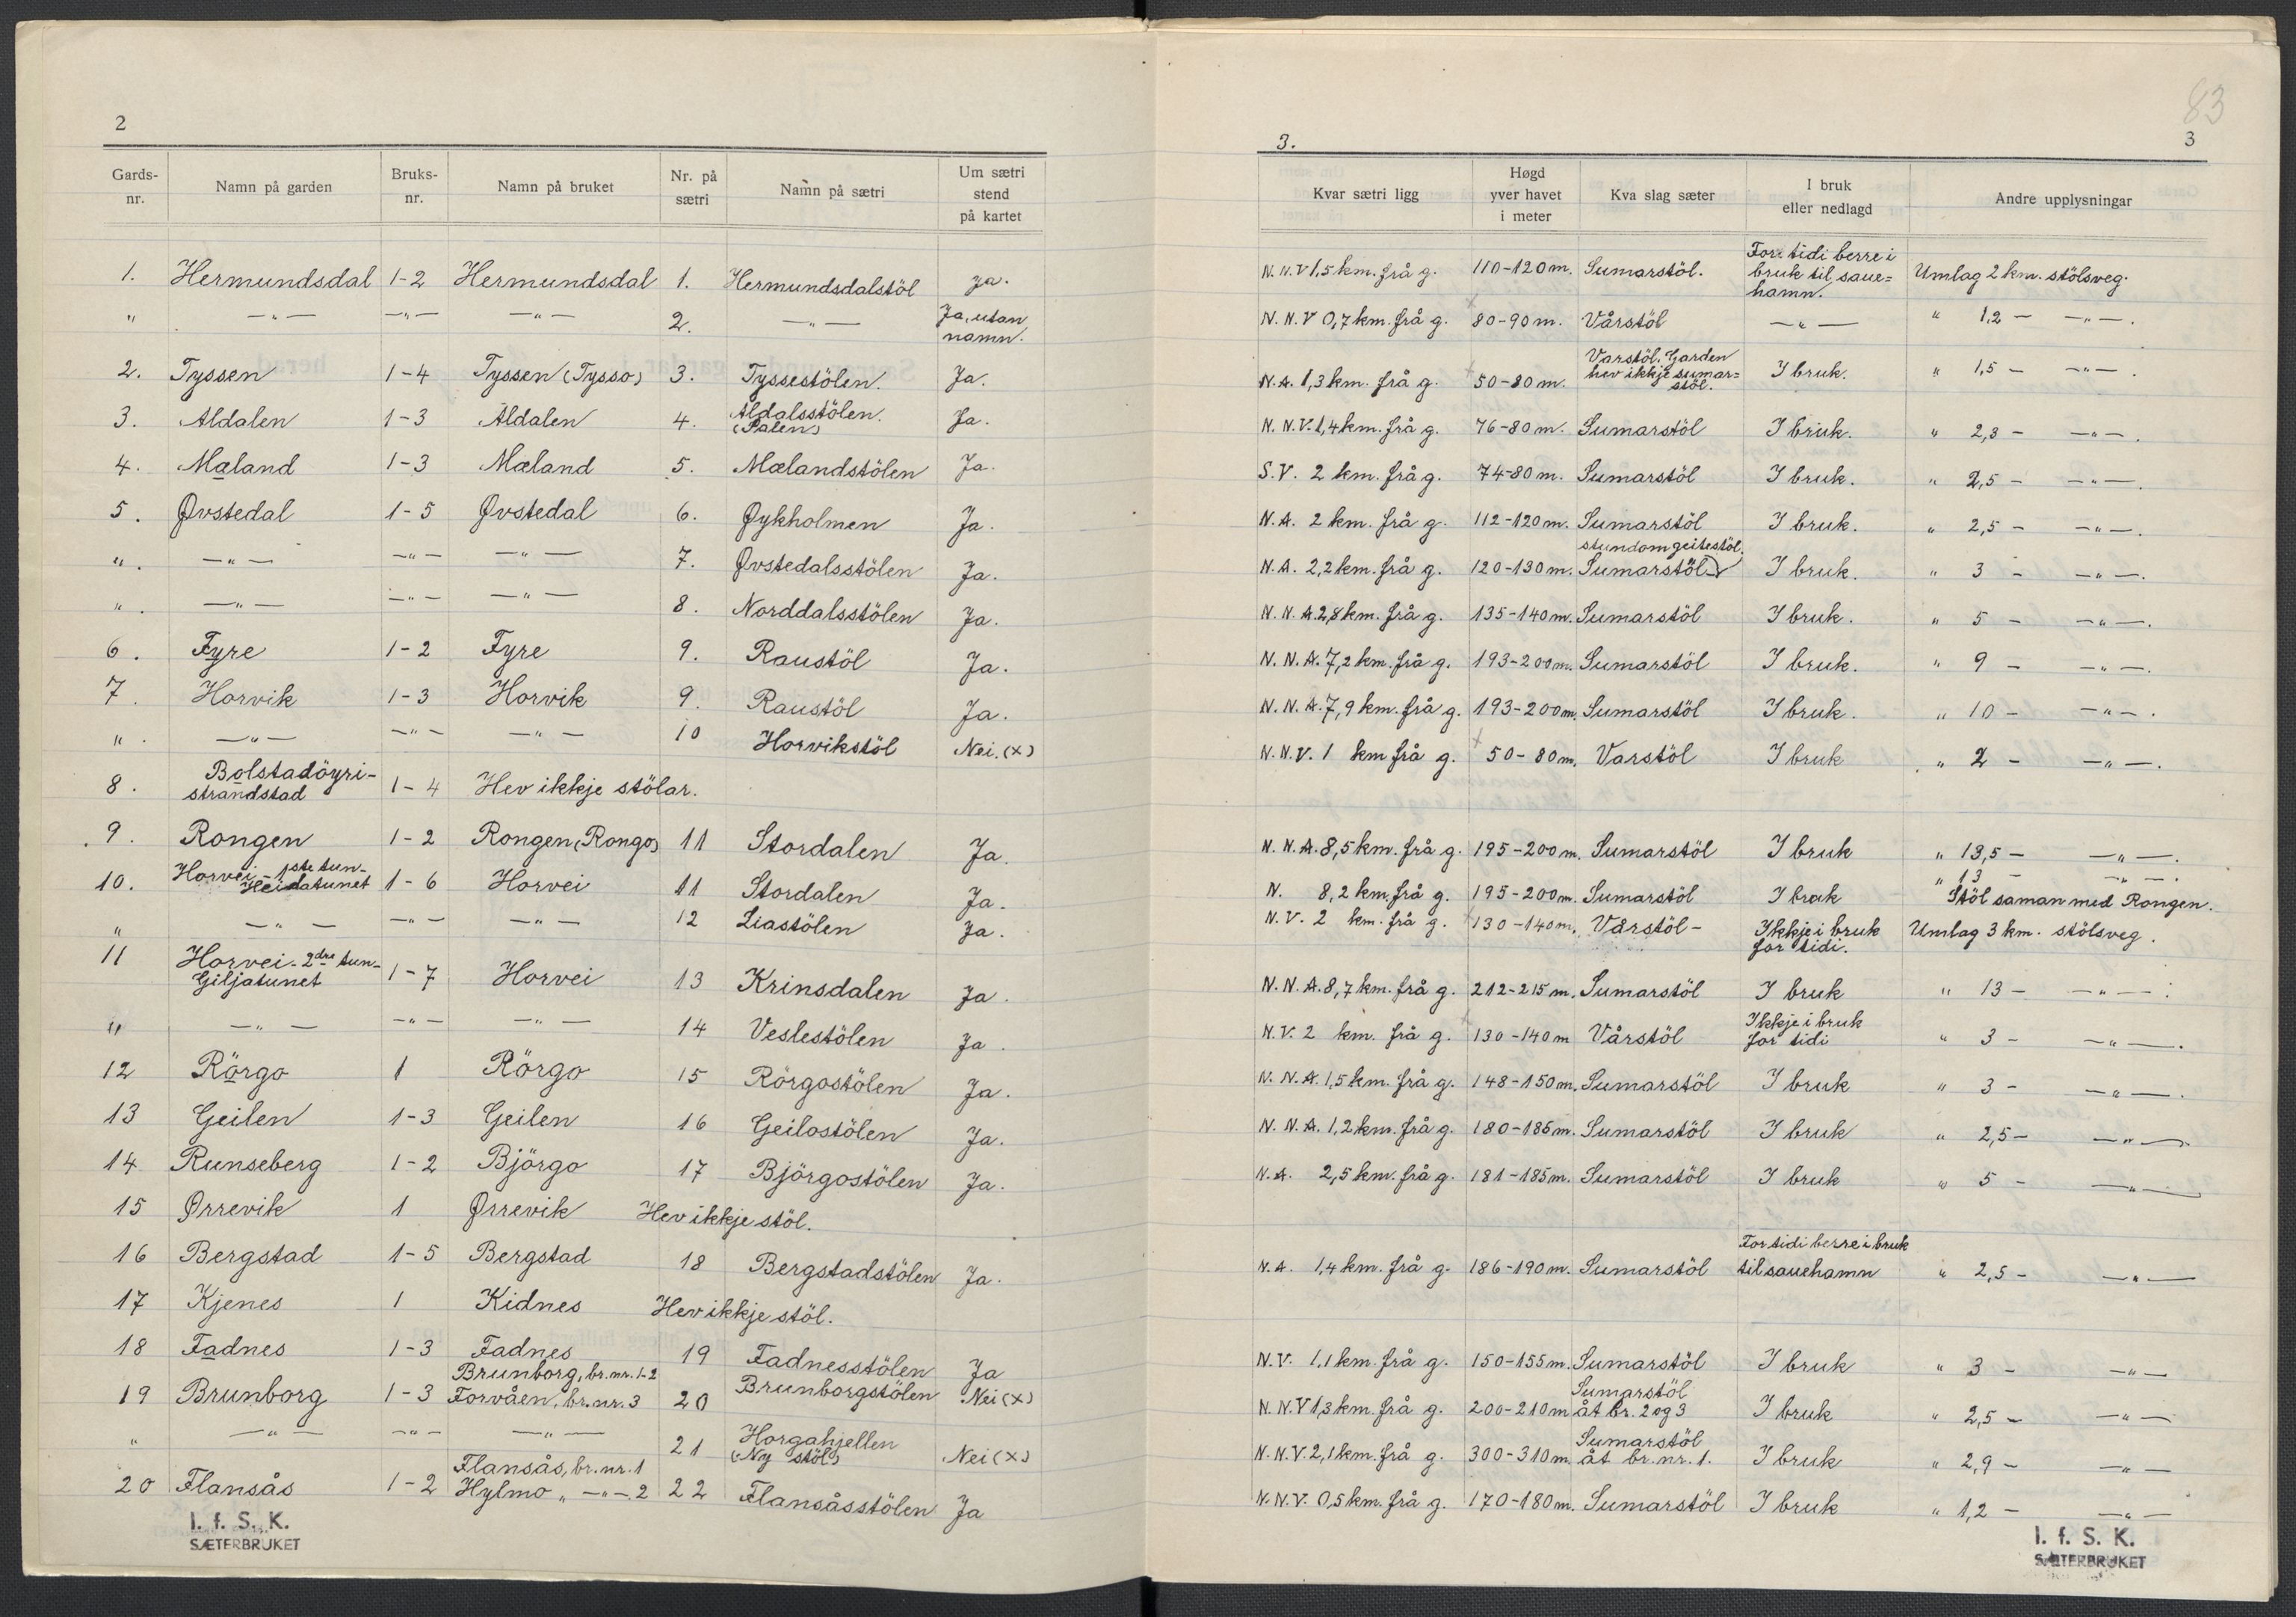 2
Gards-nr. Namn på garden Bruks-nr. Namn på bruket Nr. på sætri Namn på sætri Um sætri stend på kartet
1. Hermundsdal 1-2 Hermundsdal 1. Hermundsdalstöl Ja.
" —"— —"— —"— 2. —"— Ja, utan namn.
2. Tyssen 1-4 Tyssen (Tysso) 3. Tyssestölen. Ja.
3. Aldalen 1-3 Aldalen 4. Aldalsstölen. (Palen) Ja.
4. Mæland 1-3 Mæland 5. Mælandstölen Ja.
5. Øvstedal 1-5 Øvstedal 6. Øykholmen Ja.
". —"— —"— —"— 7. Øvstedalsstölen Ja.
". —"— —"— —"— 8. Norddalsstölen Ja.
6. Fyre 1-2 Fyre 9. Raustöl Ja.
7. Horvik 1-3 Horvik 9. Raustöl Ja.
". —"— —"— —"— 10 Horvikstöl Nei.(x)
8. Bolstadöyri-strandstad 1-4 Hev ikkje stölar.
9. Rongen 1-2 Rongen (Rongo) 11 Stordalen Ja.
10. Horvei - 1ste tun - Heidatunet 1-6 Horvei 11 Stordalen Ja.
" —"— —"— —"— 12 Liastölen Ja.
11 Horvei - 2dre tun - Giljatunet 1-7 Horvei 13 Krinsdalen Ja.
" —"— —"— —"— 14 Veslestölen Ja.
12 Rörgo 1 Rörgo 15 Rörgostölen Ja.
13 Geilen 1-3 Geilen 16 Geilostölen Ja.
14 Runseberg 1-2 Björgo 17 Björgostölen Ja.
15 Ørrevik 1 Ørrevik Hev ikkje stöl.
16 Bergstad 1-5 Bergstad 18 Bergstadstölen Ja.
17 Kjenes 1 Kidnes Hev ikkje stöl.
18 Fadnes 1-3 Fadnes 19 Fadnesstölen Ja
19 Brunborg 1-3 Brunborg, br.nr. 1-2 Forvåen, br.nr. 3 20 Brunborgstölen Nei (x)
" —"— —"— —"— 21 Horgahjellen (Ny stöl) Nei (x)
20 Flansås 1-2 Flansås, br.nr. 1 Hylmo " —"— 2 22 Flansåsstölen Ja
I. f. S. K.
SÆTERBRUKET
83
3.
3
Kvar sætri ligg Høgd yver havet i meter Kva slag sæter I bruk eller nedlagd Andre upplysningar
N.N.V 1,5 km. frå g. 110-120 m. Sumarstöl. For tidi berre i bruk til saue=hamn. Umlag 2 km. stölsveg.
N.N.V 0,7 km. frå g. 80-90 m. Vårstöl —"— " 1,2 — —"—.
N.A. 1,3 km. frå g. 50-80 m. Varstöl. Garden hev ikkje sumar=stöl. I bruk. " 1,5 — —"—.
N.N.V. 1,4 km. frå g. 76-80 m. Sumarstöl I bruk. " 2,3 — —"—.
S.V. 2 km. frå g. 74-80 m. Sumarstöl I bruk. " 2,5 — —"—.
N.A. 2 km. frå g. 112-120 m. Sumarstöl I bruk. " 2,5 — —"—.
N.A. 2,2 km. frå g. 120-130 m. Sumarstöl stundom geitestöl. I bruk. " 3 — —"—.
N.N.A. 2,8 km. frå g. 135-140 m. Sumarstöl I bruk. " 5 — —"—.
N.N.A. 7,2 km. frå g. 193-200 m. Sumarstöl I bruk. " 9 — —"—.
N.N.A. 7,9 km. frå g. 193-200 m. Sumarstöl I bruk. " 10 — —"—.
N.N.V. 1 km frå g. 50-80 m. Varstöl I bruk " 2 — —"—.
N.N.A. 8,5 km. frå g. 195-200 m. Sumarstöl I bruk " 13,5 — —"—.
N. 8,2 km. frå g. 195-200 m. Sumarstöl I bruk " 13 — —"—. Stöl saman med Rongen.
N.V. 2 km. frå g. 130-140 m. Vårstöl - Ikkje i bruk for tidi. Umlag 3 km. stölsveg.
N.N.A. 8,7 km. frå g. 212-215 m. Sumarstöl I bruk " 13 — —"—.
N.V. 2 km. frå g. 130-140 m Vårstöl Ikkje i bruk for tidi " 3 — —"—.
N.N.A. 1,5 km. frå g. 148-150 m. Sumarstöl I bruk " 3 — —"—.
N.N.A. 1,2 km. frå g. 180-185 m. Sumarstöl I bruk " 2,5 — —"—.
N.A. 2,5 km. frå g. 181-185 m. Sumarstöl I bruk " 5 — —"—
N.A. 1,4 km. frå g. 186-190 m. Sumarstöl For tidi berre i bruk til sauehamn " 2,5 — —"—
N.V. 1,1 km. frå g. 150-155 m. Sumarstöl I bruk " 3 — —"—
N.N.V 1,3 km. frå g. 200-210 m Sumarstöl åt br. 2 og 3 I bruk " 2,5 — —"—
N.N.V. 2,1 km. frå g. 300-310 m. Sumarstöl åt br.nr. 1. I bruk " 2,9 — —"—
N.N.V. 0,5 km. frå g. 170-180 m. Sumarstöl I bruk " 1,2 — —"—
I. f. S. K.
SÆTERBRUKET